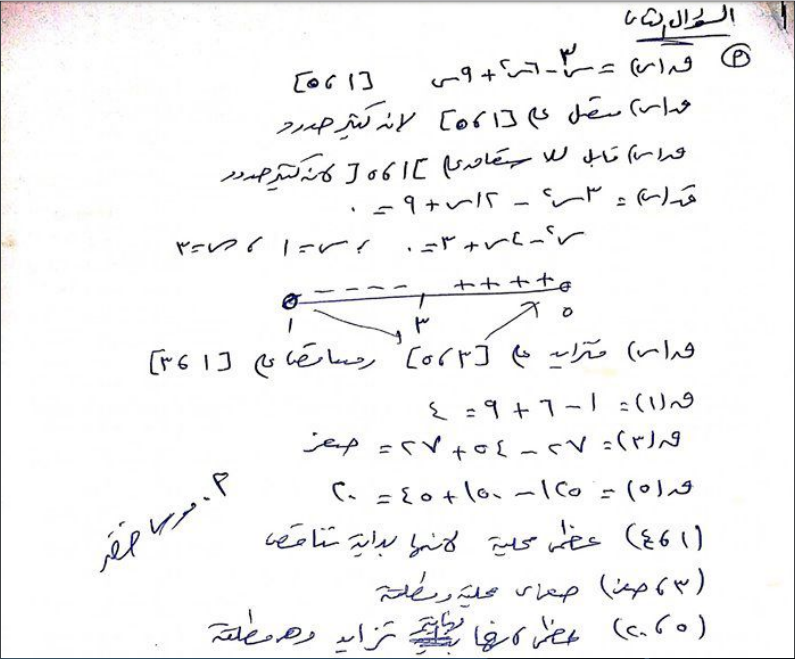 السؤال الثاني
P) ق(س) = س٣ - ٦س٢ + ٩س [١ ، ٥]
ق(س) متصل على [١ ، ٥] لانه كثير حدود
ق(س) قابل للاشتقاق على ]١ ، ٥[ لانه كثير حدود
قَ(س) = ٣س٢ - ١٢س + ٩ = ٠
س٢ - ٤س + ٣ = ٠ ، س = ١ ، س = ٣
- - - - + + + +
١ ٣ ٥
ق(س) متزايد على [٣ ، ٥] ومتناقص على [١ ، ٣]
ق(١) = ١ - ٦ + ٩ = ٤
ق(٣) = ٢٧ - ٥٤ + ٢٧ = صفر
ق(٥) = ١٢٥ - ١٥٠ + ٤٥ = ٢٠
(١ ، ٤) عظمى محلية لانها بداية تناقص
(٣ ، صفر) صغرى محلية ومطلقة
(٥ ، ٢٠) عظمى لانها نهاية تزايد وهي مطلقة